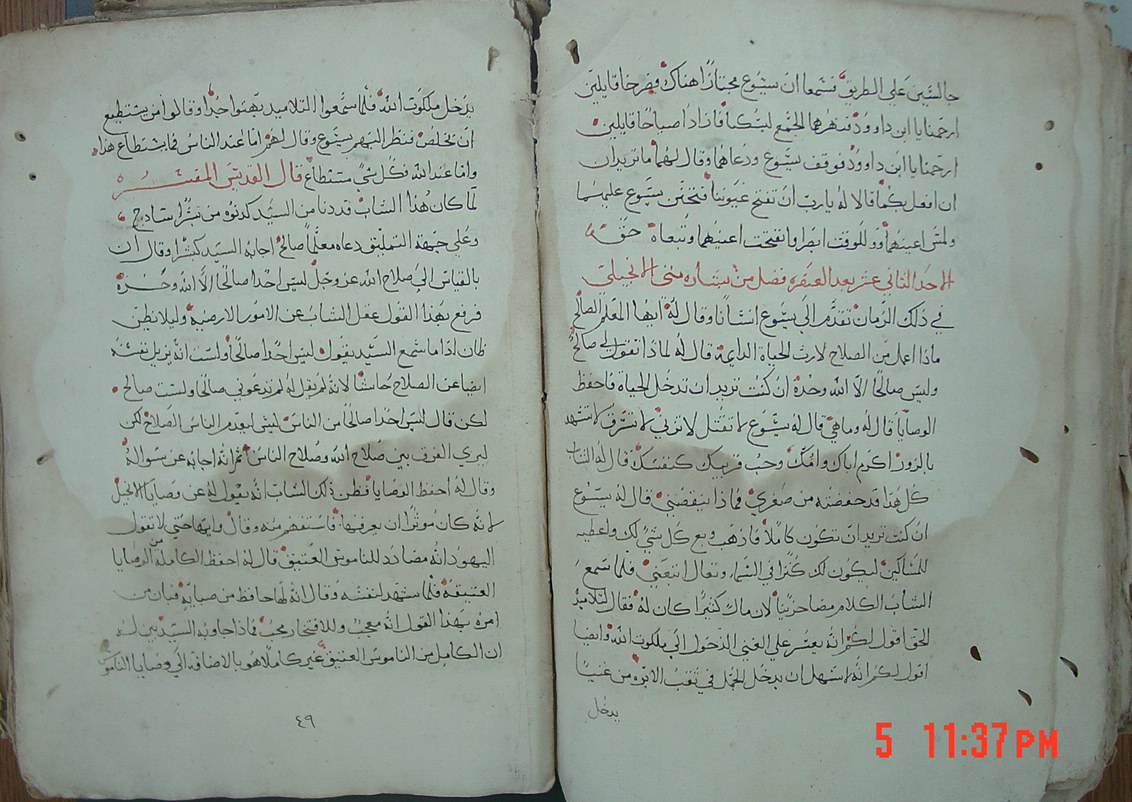 جالسين على الطريق فسمعا ان يسوع مجتازًا هناك فصرخا قايلين
ارحمنا يا ابن داوود فنهرهما الجمع ليسكتا فازدادا صياحًا قايلين
ارحمنا يا ابن داوود فوقف يسوع ودعاهما وقال لهما ما تريدان
ان افعل بكما قالا له يا رب ان تفتح عيوننا فتحنن يسوع عليهما
ولمس اعينهما وللوقت ابصرا وانفتحت اعينهما وتبعاه
الاحد الثاني عشر بعد العنصره فصل من بشاره متى الانجيلي
في ذلك الزمان تقدم الى يسوع انسانًا وقال له ايها المعلم الصالح
ماذا اعمل من الصلاح لارث الحياة الدايمة قال له لماذا تقول لي صالح
وليس صالحًا الا الله وحده ان كنت تريد ان تدخل الحياة فاحفظ
الوصايا قال له وما هي قال له يسوع لا تقتل لا تزني لا تسرق لا تشهد
بالزور اكرم اباك وامك وحب قريبك كنفسك قال له الشاب
كل هذا قد حفضته من صغري فماذا ينقصني قال له يسوع
ان كنت تريد ان تكون كاملًا فاذهب وبع كل شي لك واعطيه
للمساكين ليكون لك كنزًا في السما وتعال اتبعني فلما سمع
الشاب الكلام مضا حزينًا لان مال كثيرًا كان له فقال لتلاميذه
الحق اقول لكم انه يعسر على الغني الدخول الى ملكوت الله وايضا
اقول لكم انه لاسهل ان يدخل الجمل في ثقب الابره من غنيًا
يدخل
يدخل ملكوت الله فلما سمعوا التلاميد بهتوا جدا وقالوا من يستطيع
ان يخلص فنظر اليهم يسوع وقال لهم اما عند الناس فما يستطاع هذا
واما عند الله فكل شي مستطاع قال القديس المفسر
لما كان هذا الشاب قد دنا من السيد كدنوه من بشرا سادج
وعلى جهة التمليق دعاه معلمًا صالح اجابه السيد كبشرا وقال ان
بالقياس الى صلاح الله عز وجل ليس احدا صالحًا الا الله وحده
فرفع بهذا القول عقل الشاب عن الامور الارضية وليلا يظن
ظان اذا ما سمع السيد يقول ليس احدا صالحًا ولست انه يزيل نفسه
ايضا عن الصلاح حاشا لانه لم يقل له لم تدعوني صالحًا ولست صالح
لكن قال ليس احدا صالحًا من الناس ليس ليعدم الناس الصلاح لكن
ليري الفرق بين صلاح الله وصلاح الناس ثم انه اجابه عن سواله
وقال له احفظ الوصايا فظن ذلك الشاب انه يقول له عن وصايا
لانه كان موثرًا ان يعرفها فاستفهم منه وقال وايها حتى لا تقول
اليهود انه مضادد للناموس العتيق قال له احفظ الكامله من الوصايا
العتيقة فلما ستشهد لنفسه وقال انه لها حافظ من صبايه فبان من
امره بهذا القول انه معجب وللافتخار محب فماذا جاوبه السيد بين له
ان الكامل من الناموس العتيق غير كاملًا هو بالاضافه الى وصايا الناموس
٤٩
5 11:37PM